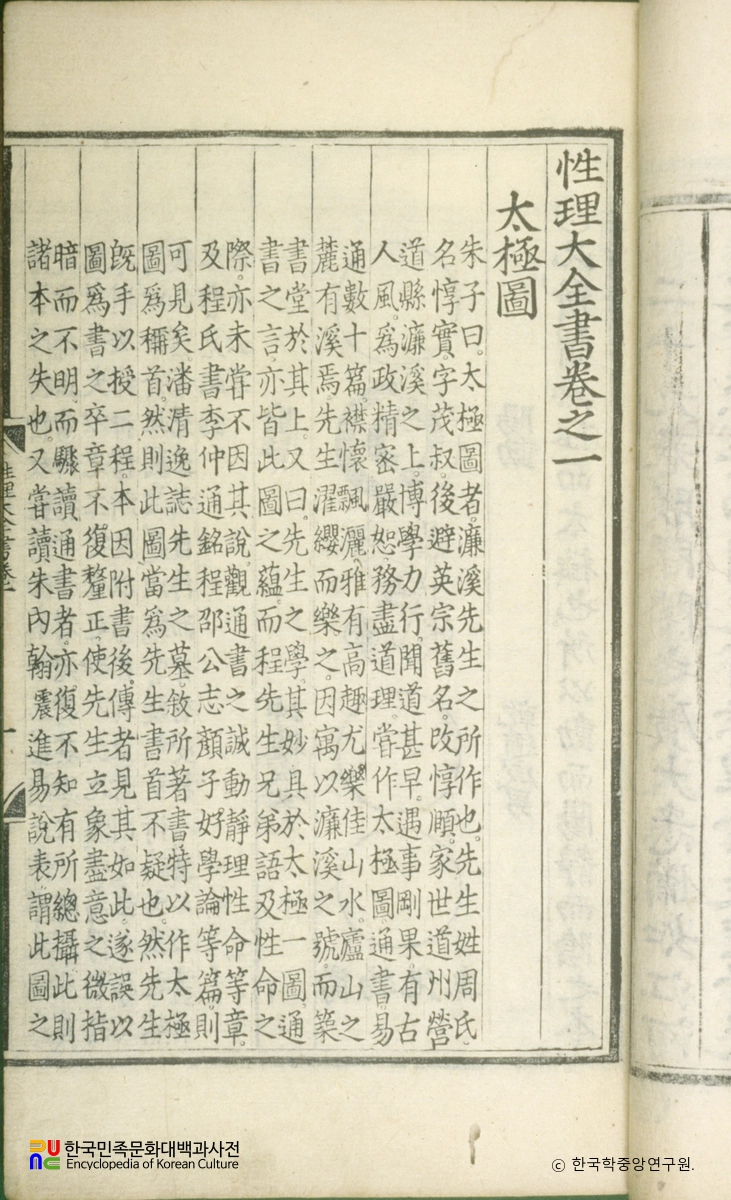 性理大全書卷之一
太極圖
朱子曰。太極圖者。濂溪先生之所作也。先生姓周氏
名惇實。字茂叔。後避英宗舊名。改惇頤。家世道州營
道縣濂溪之上。博學力行。聞道甚早。遇事剛果。有古
人風。爲政精密嚴恕。務盡道理。甞作太極圖通書易
通數十篇。襟懷飄灑。雅有高趣。尤樂佳山水。廬山之
麓有溪焉。先生濯纓而樂之。因寓以濂溪之號。而築
書堂於其上。又曰。先生之學。其妙具於太極一圖。通
書之言。亦皆此圖之蘊。而程先生兄弟語及性命之
際。亦未甞不因其說。觀通書之誠動靜理性命等章。
及程氏書李仲通銘程邵公志顏子好學論等篇。則
可見矣。潘清逸誌先生之墓。敘所著書。特以作太極
圖爲稱首。然則此圖當爲先生書首不疑也。然先生
旣手以授二程。本因附書後。傳者見其如此。遂誤以
圖爲書之卒章。不復釐正。使先生立象盡意之微㫖
暗而不明。而驟讀通書者。亦復不知有所總攝。此則
諸本之失也。又甞讀朱內翰震進易說表。謂此圖之
性理大全書卷一
한국민족문화대백과사전
Encyclopedia of Korean Culture
© 한국학중앙연구원.